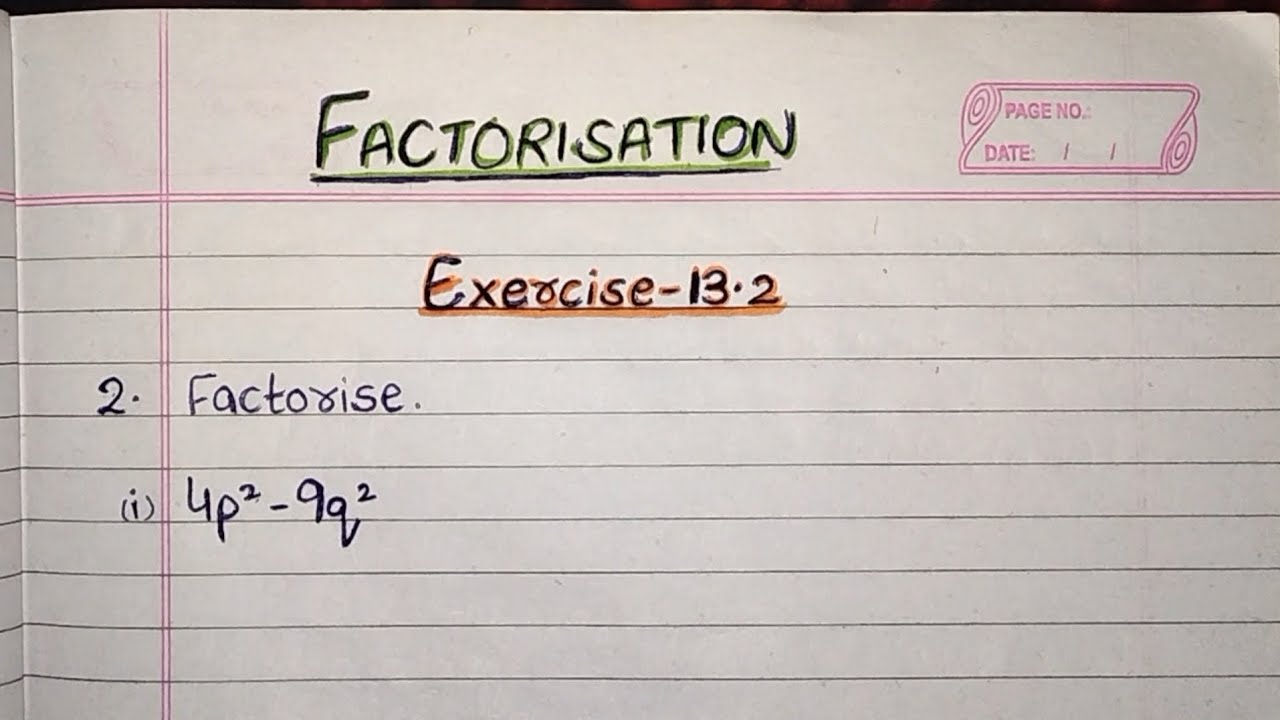 FACTORISATION
PAGE NO.:
DATE: / /
Exercise-13.2
2. Factorise.
(i) 4p²-9q²